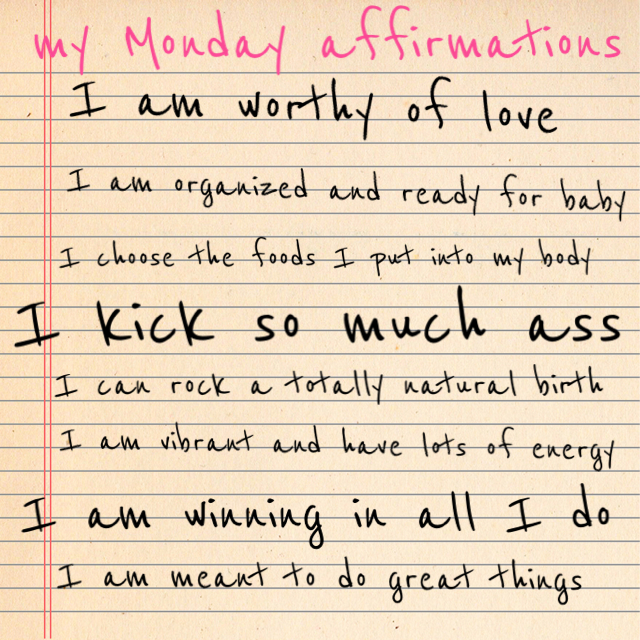 my Monday affirmations
I am worthy of love
I am organized and ready for baby
I choose the foods I put into my body
I kick so much ass
I can rock a totally natural birth
I am vibrant and have lots of energy
I am winning in all I do
I am meant to do great things